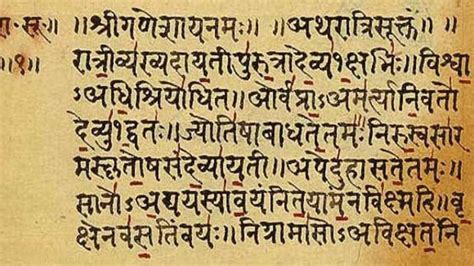 रा॰ सू॰ ॥श्रीगणेशायनमः॥ ॥अथरात्रिसूक्तं॥
॥१॥ रात्रीव्यख्यदायतीपुरुत्रादेव्य१क्षभिः॥विश्वा
ऽअधिश्रियोधित॥ओर्वप्राऽअमर्त्यानिवतो
देव्यु१द्वतः॥ज्योतिषाबाधतेतमः॥निरुस्वसार
मस्कृतोषसंदेव्यायती॥अपेदुहासतेतमः॥
सानोऽअद्ययस्यावयंनितेयामन्नविक्ष्महि॥वृ
क्षेनवसतिंवयः॥निग्रामासोऽअविक्षतनि